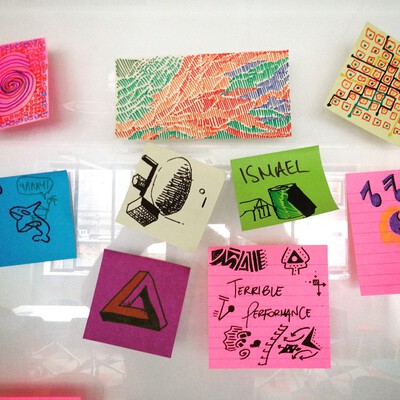 ISMAEL
TERRIBLE
PERFORMANCE